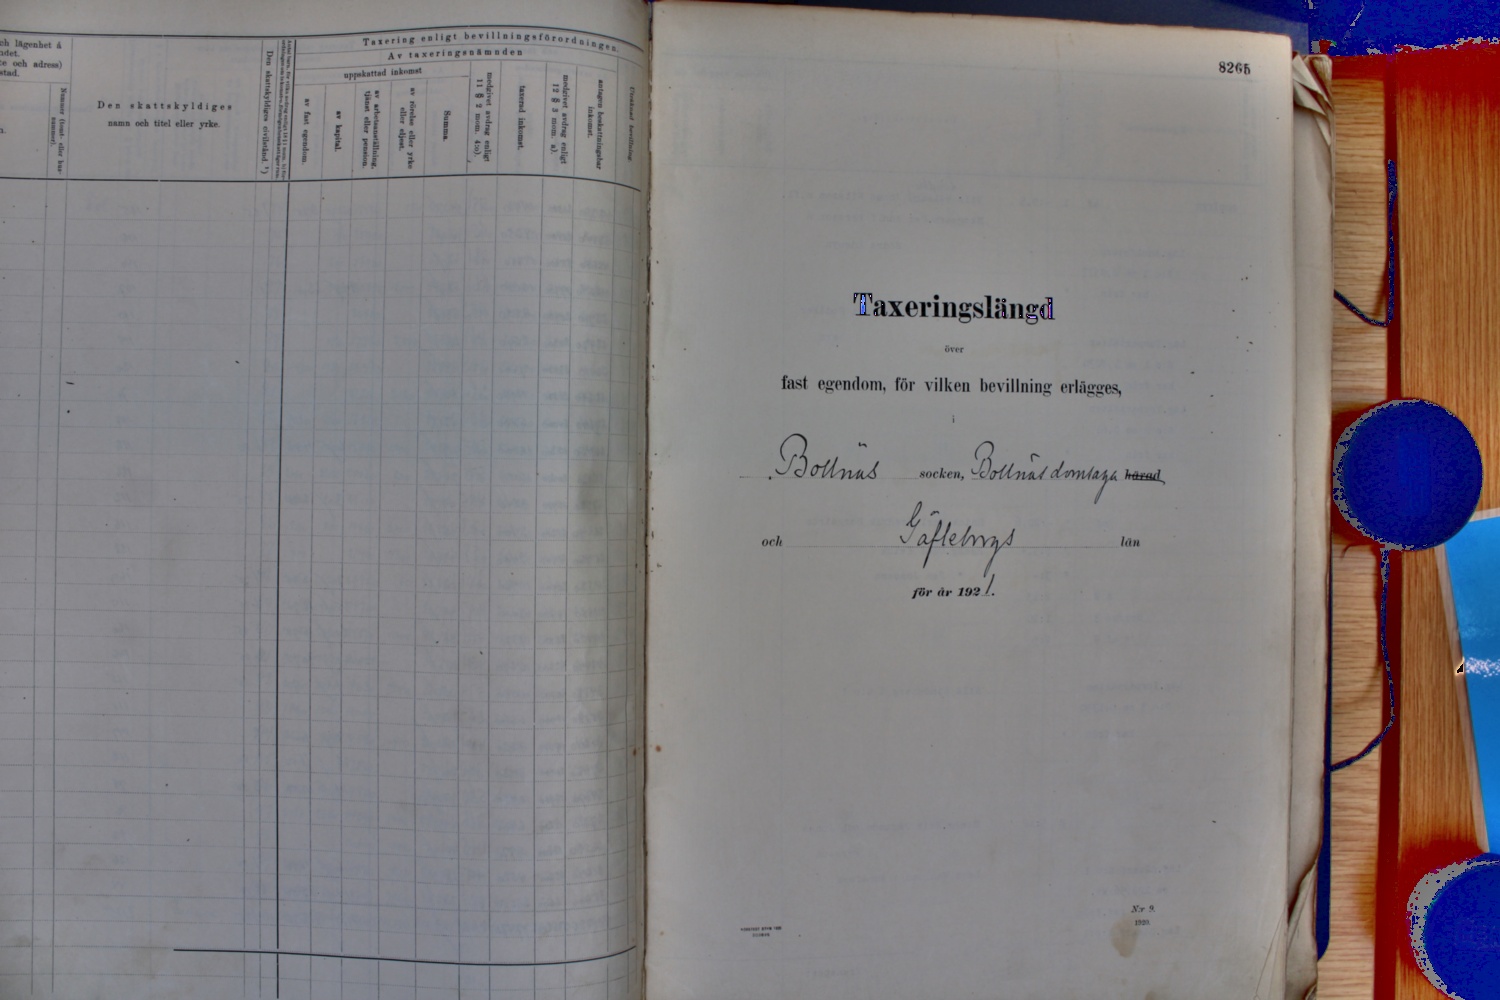 ch lägenhet å
ndet.
te och adress)
stad.
Den skattskyldiges
namn och titel eller yrke.
Den skattskyldiges civilstånd. *)
Taxering enligt bevillningsförordningen.
Av taxeringsnämnden
uppskattad inkomst
av fast egendom.
av kapital.
av arbetsanställning,
tjänst eller pension.
av rörelse eller yrke
eller eljest.
Summa.
medgivet avdrag enligt
11 § 2 mom. 4:o).
taxerad inkomst.
medgivet avdrag enligt
12 § 3 mom. a).
antagen beskattningsbar
inkomst.
Uträknad bevillning.
8265
Taxeringslängd
över
fast egendom, för vilken bevillning erlägges,
i
Bollnäs socken, Bollnäs domsaga härad
och Gäfleborgs län
för år 1921.
N:r 9.
1920.